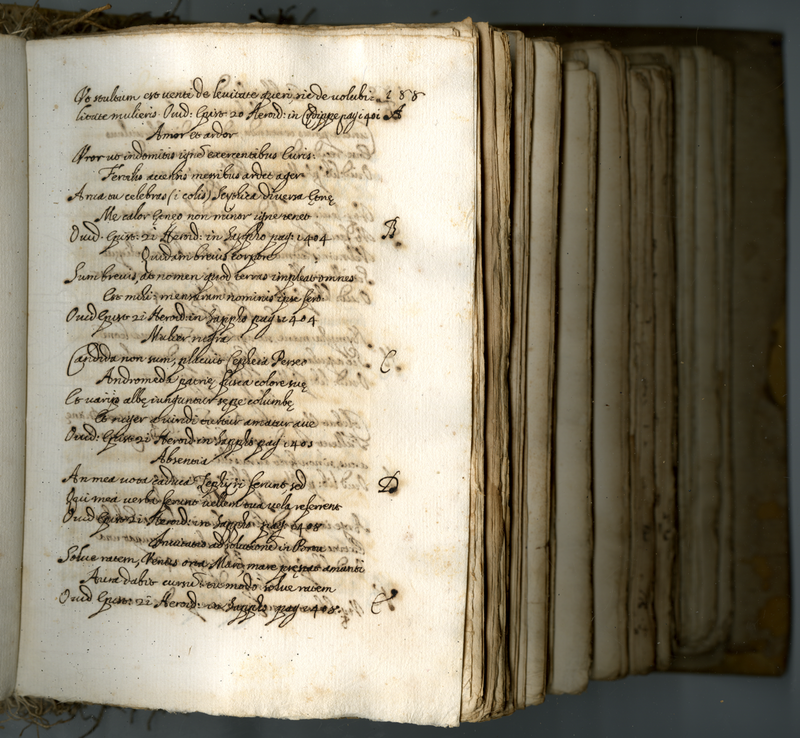 Vt stultum est venti de levitate queri, sic de volubi: 188
litate mulieris Ovid: Epist: 20 Heroid: in Cydippe pag: 401 A
Amor et ardor
Vror ut indomitis igne exercentibus Euris:
Fertilis accensis messibus ardet ager
Arva tu celebras (i colis) diversa Etnę
Me calor Etneo non minor igne tenet
Ovid: Epist: 21 Heroid: in Sappho pag: 404 B
Quidam brevis corpore
Sum brevis, at nomen quod terras impleat omnes
Est mihi: mensuram nominis ipse fero
Ovid Epist: 21 Heroid: in Sappho pag: 404
Mulier nigra
Candida non sum, placuit Cepheia Perseo C
Andromeda patrię fusca colore suę
Et varijs albę iunguntur sępe columbę
Et niger a viridi turtur amatur ave
Ovid: Epist: 21 Heroid: in Sappho pag: 405
Absentia
An mea vota caduca Zephyri ferunt sed D
Qui mea verba ferunt vellem tua vela referent
Ovid Epist: 21: Heroid: in Sappho: pag: 408
ad solutione in Portu
Solve ratem, Venus orta Mari mare pręstat amanti
Aura dabit cursum tu modo solve ratem
Ovid Epist: 21 Heroid: in Sappho: pag: 408: E